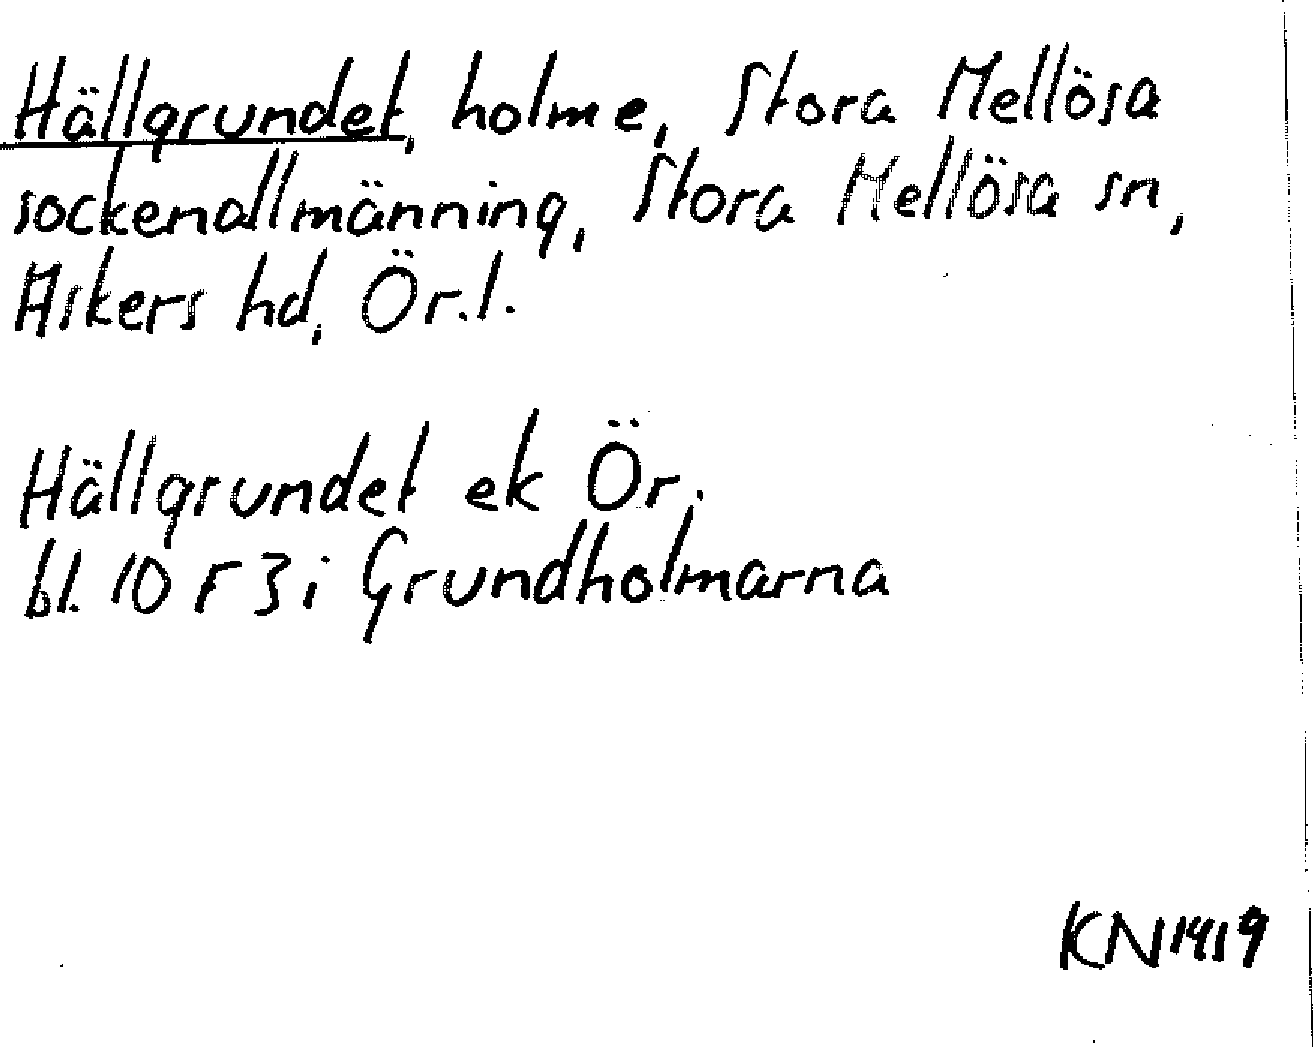 Hällgrundet, holme, Stora Mellösa
sockenallmänning, Stora Mellösa sn,
Askers hd, Ör.l.
Hällgrundet ek Ör.
bl. 10 F 3 i Grundholmarna
KN1419